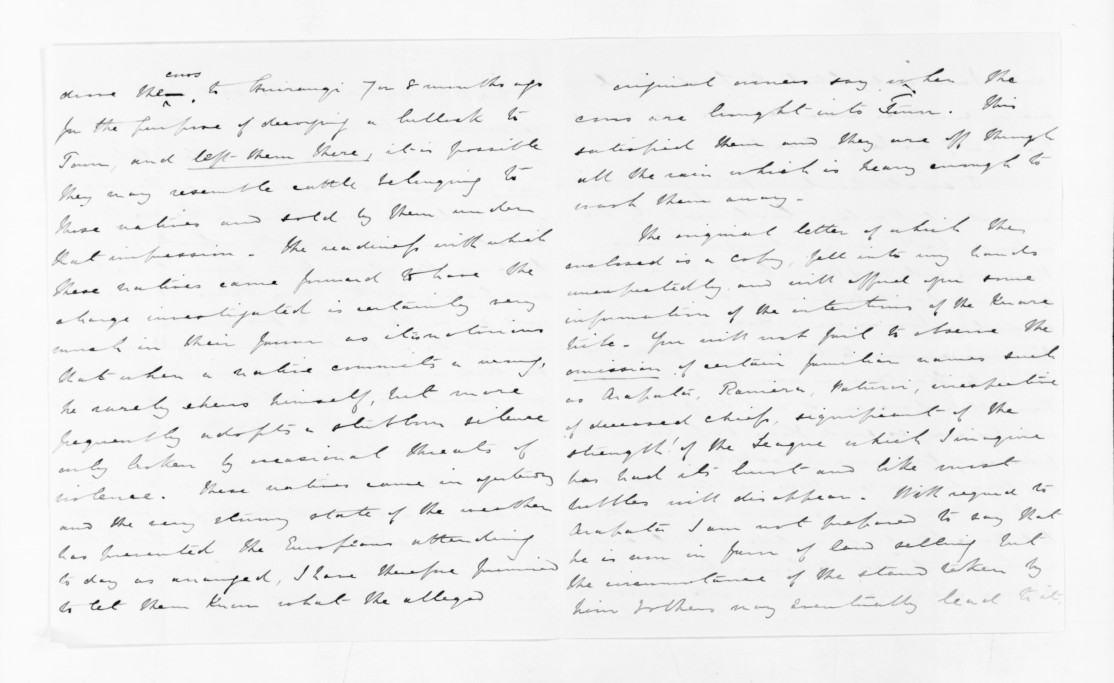 cows
drove the , to 7 or 8 months ago
for the purpose of decoying a bullock to
Town, and left them there, it is possible
they may resemble cattle belonging to
these natives and sold by them under
that impression - The readiness with which
these natives came forward to have the
charge investigated is certainly very
much in their favor as it is notorious
that when a native commits a wrong,
he rarely shews himself, but more
frequently adopts a stubborn silence
only broken by occasional threats of
violence. These natives came in yesterday
and the very stormy state of the weather
has prevented the Europeans attending
to day as arranged, I have therefore promised
to let them know what the alleged
original owners say when the
cows are brought into Town. This
satisfied them and they are off through
all the rain which is heavy enough to
wash them away -
The original letter of which the
enclosed is a copy, fell into my hands
unexpectedly and will afford you some
information of the intentions of the
tribe - You will not fail to observe the
omission of certain familiar names such
as Arapata, Ramera, irrespective
of deceased chiefs, significant of the
strength! of the League which I imagine
has had its burst and like most
bubbles will disappear - With regard to
Arapata I am not prepared to say that
he is now in favor of land selling but
the circumstance of the stand taken by
him & others may eventually lead to it.